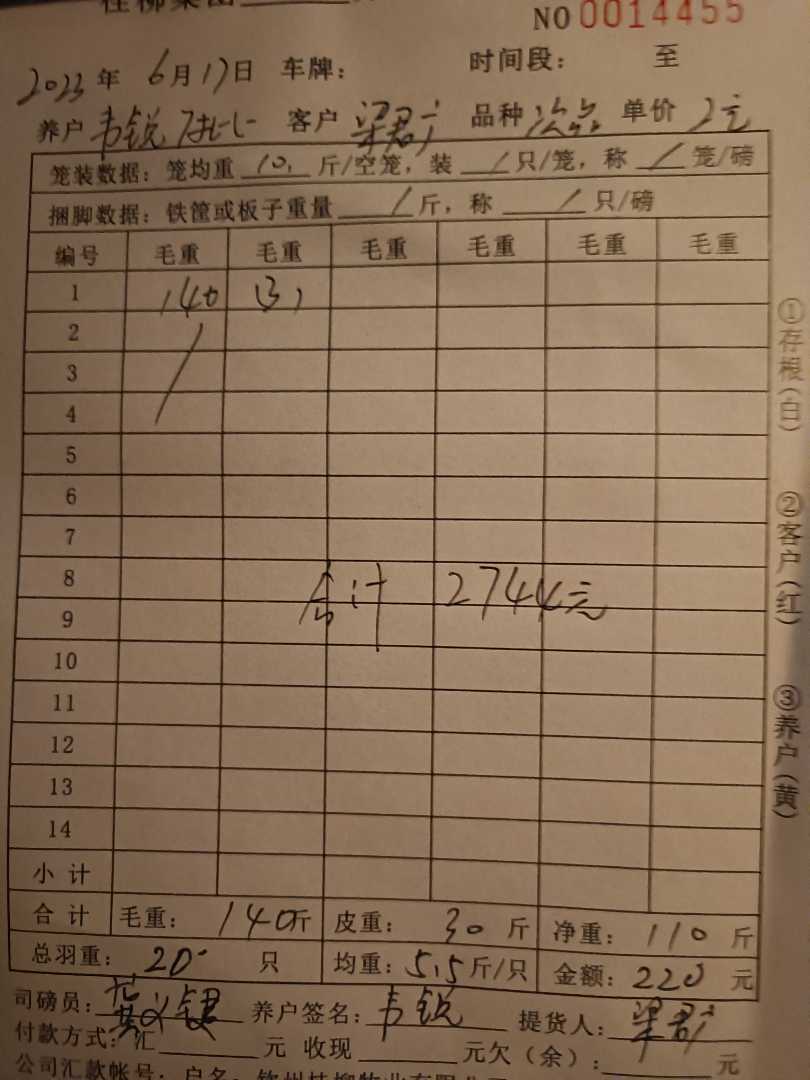 NO 0014455
2023年 6月17日 车牌: 时间段: 至
养户 韦锐 客户 梁君广 品种 次品 单价 2元
笼装数据: 笼均重 10. 斤/空笼, 装 / 只/笼, 称 / 笼/磅
捆脚数据: 铁筐或板子重量 / 斤, 称 / 只/磅
编号 毛重 毛重 毛重 毛重 毛重 毛重
1 140 (3)
2
3
4
5
6
7
8
合计 2744元
9
10
11
12
13
14
小 计
合 计 毛重: 140斤 皮重: 30 斤 净重: 110 斤
总羽重: 20 只 均重: 5.5 斤/只 金额: 220 元
司磅员: 养户签名: 韦锐 提货人: 梁君广
付款方式: 汇 元 收现 元欠（余）: 元
公司汇款帐号: 户名: 钦州桂柳牧业有限公司
①存根(白) ②客户(红) ③养户(黄)